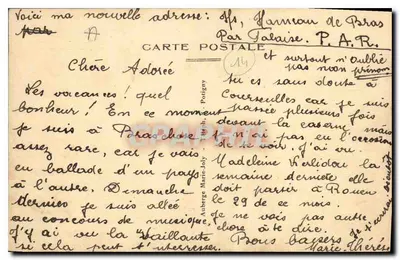 Voici ma nouvelle adresse: Hs, Hameau de Bras
par Par Falaise. P.A.R.
CARTE POSTALE
(14)
et surtout n'oublie
pas mon prénom
Chère Adorée
Les vacances! quel
bonheur! En ce moment
je suis à Bras, chose
assez rare, car je vais
en ballade d'un pays
à l'autre. Dimanche
dernier je suis allée
au concours de musique,
j'y ai vu la Vaillante
si cela peut t'interesser.
Auberge Marie-Joly
Potigny
tu es sans doute à
Courseulles car je suis
passée plusieurs fois
devant la caserne mais
je n'ai pas eu l'occasion
de te voir. J'ai vu
Madeleine Verlidou la
semaine dernière elle
doit partir à Rouen
le 29 de ce mois.
Je ne vois pas autre
chose à te dire.
Bons baisers
Marie-Thérèse